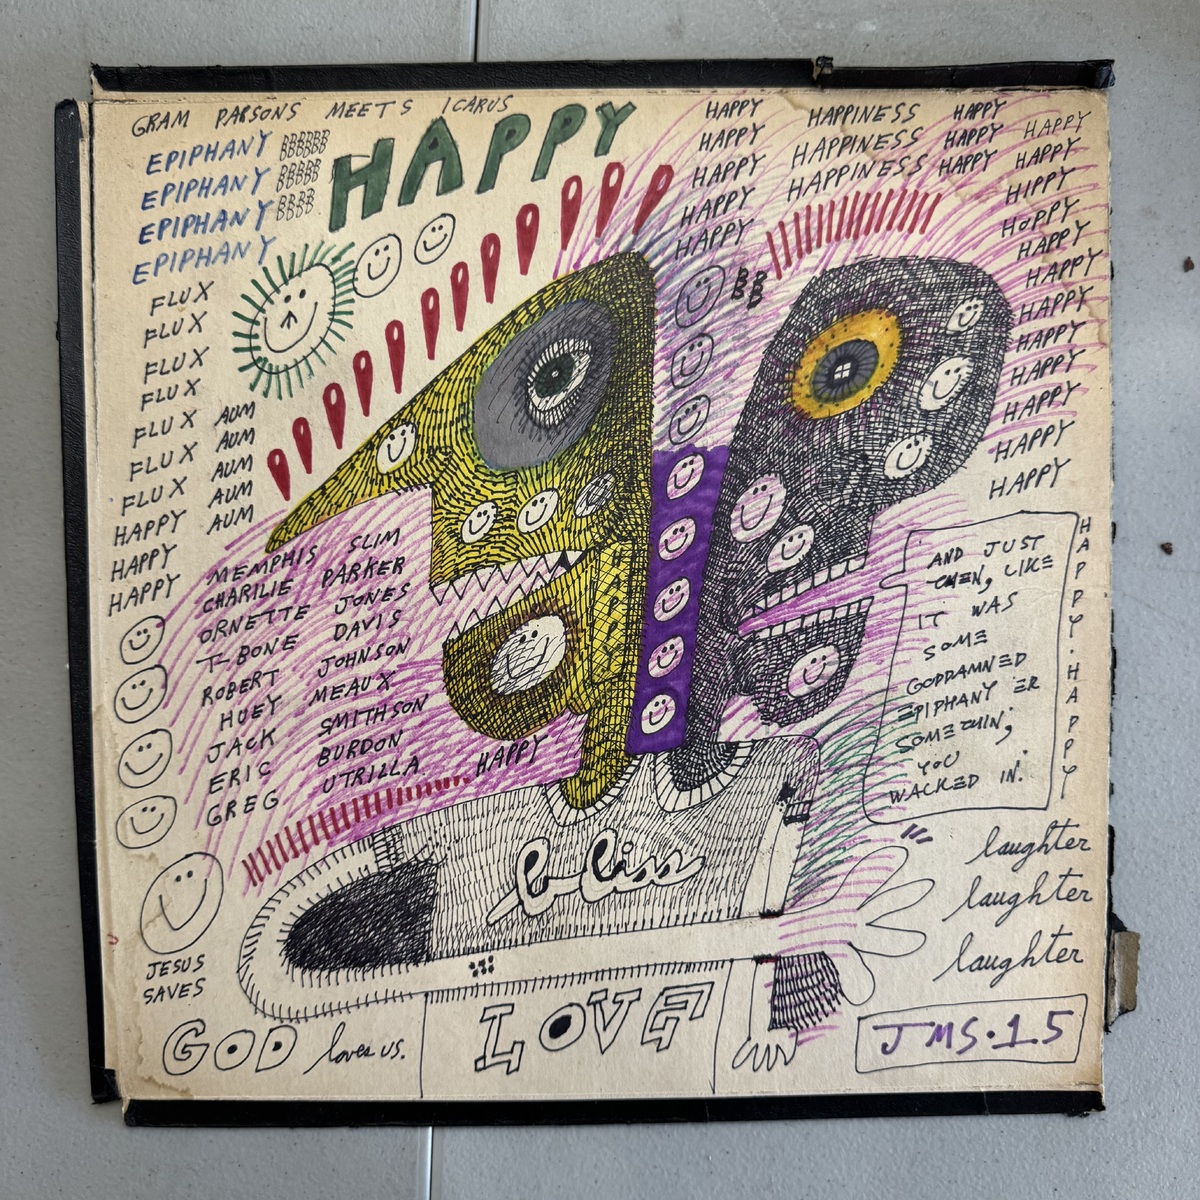 GRAM PARSONS MEETS ICARUS
EPIPHANY BBBBBB
EPIPHANY BBBBB
EPIPHANY BBBB
EPIPHANY
HAPPY
FLUX
FLUX
FLUX
FLUX
FLUX AUM
FLUX AUM
FLUX AUM
HAPPY AUM
HAPPY AUM
HAPPY
HAPPY
HAPPY
HAPPY
HAPPY
HAPPY
BB
BB
HAPPINESS
HAPPINESS
HAPPINESS
HAPPY
HAPPY
HAPPY
HAPPY
HAPPY
HIPPY
HOPPY
HAPPY
HAPPY
HAPPY
HAPPY
HAPPY
HAPPY
HAPPY
HAPPY
MEMPHIS SLIM
CHARILIE PARKER
ORNETTE JONES
T-BONE DAVIS
ROBERT JOHNSON
HUEY MEAUX
JACK SMITHSON
ERIC BURDON
GREG UTRILLA HAPPY
AND JUST
THEN, LIKE
IT WAS
SOME
GODDAMNED
EPIPHANY ER
SOMETHIN;
YOU
WALKED IN.
HAPPY.HAPPY
bliss
laughter
laughter
laughter
JESUS
SAVES
GOD loves us.
LOVE
JMS.15